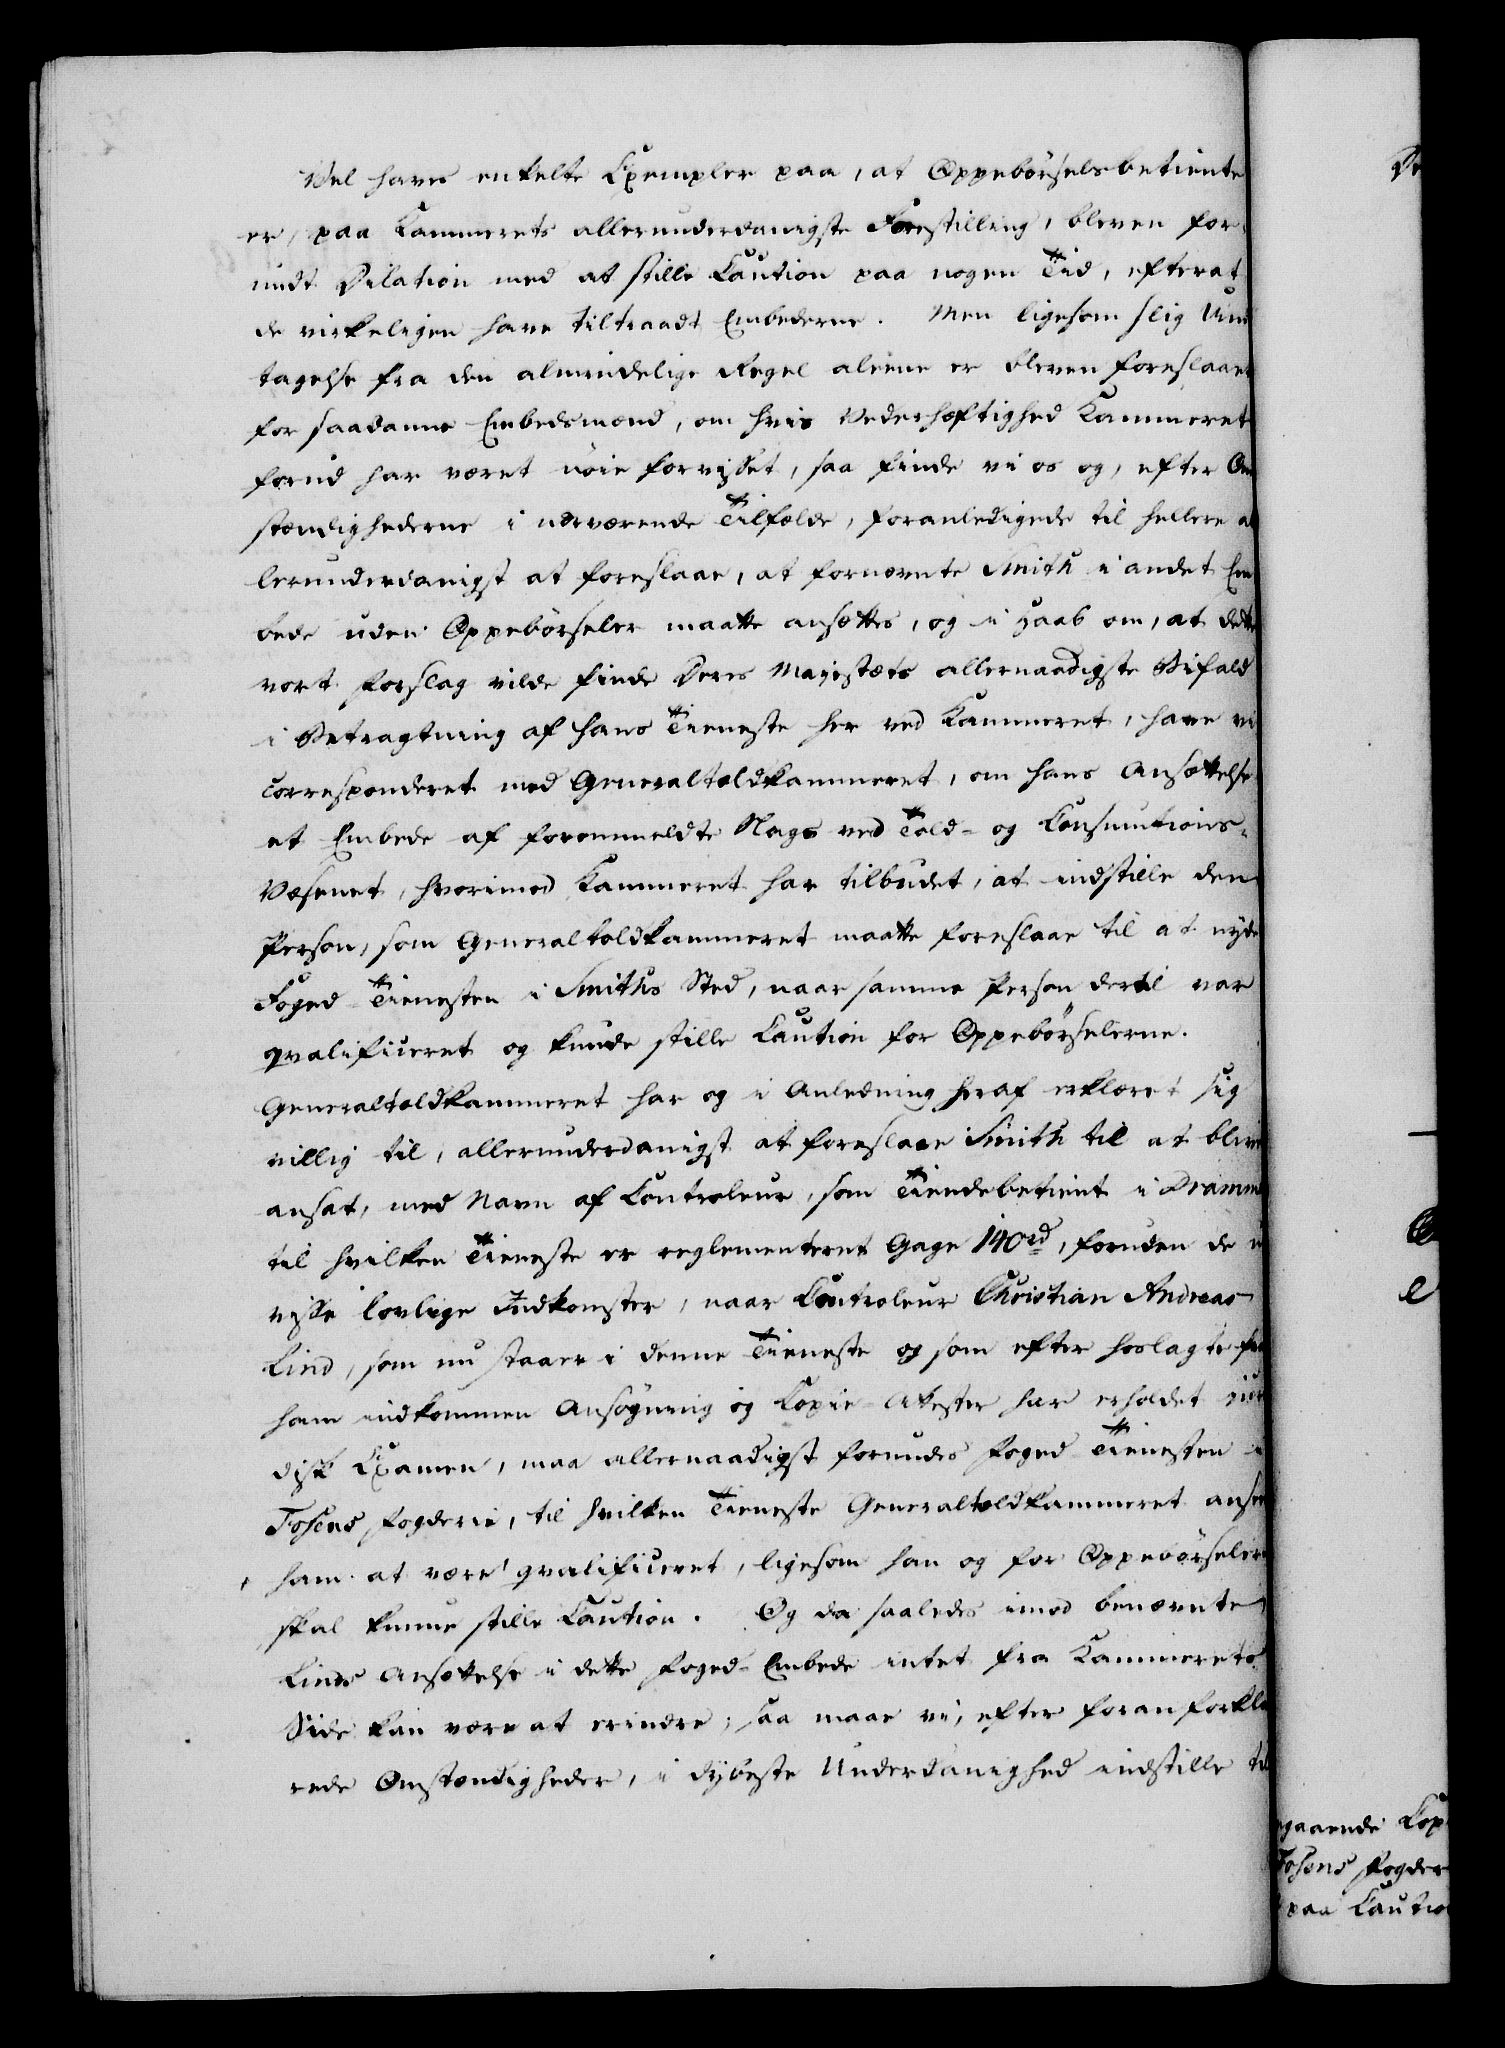 Vel haves enkelte Exempler paa, at Oppebörselsbetiente
er, paa Kammerets allerunderdanigste Forestilling, bleven for,
undt Dilation med at stille Caution paa nogen Tid, efterat
de virkeligen have tiltraadt Embederne. Men ligesom slig Und
tagelse fra den almindelige Regel aleene er bleven foreslaaet
for saadanne Embedsmænd, om hvis Vederhæftighed Kammeret
forud har været nöie forvisset, saa finde vi os og, efter Om
stændighederne i nærværende Tilfælde, foranledigede til hellere al
lerunderdanigst at foreslaae, at fornævnte Smith i andet Em
bede uden Oppebörseler maatte ansættes, og i Haab om, at dette
vort Forslag vilde finde Deres Majestæts allernaadigste Bifald
i Betragtning af hans Tieneste her ved Kammeret, have vi
correspoderet med Generaltoldkammeret, om hans Ansættelse
et Embede af forommeldte Slags ved Told- og Consumtions-
Væsenet, hvorimod Kammeret har tilbudet, at indstille den
Person, som Generaltoldkammeret maatte foreslaae til at nyde
Foged-Tienesten i Smiths Sted, naar samme Person dertil var
qvalificeret og kunde stille Caution for Oppebörselerne.
Generaltoldkammeret har og i Anledning heraf erklæret sig
villig til, allerunderdanigst at foreslaae Smith til at blive
ansat, med Navn af Controleur, som Tiendebetient i Dramme
til hvilken Tieneste er reglementeret Gage 140rd, foruden de u
visse lovlige Indkomster, naar Controleur Christian Andreas
Lind, som nu staaer i denne Tieneste og som efter hoslagte fra
ham indkommen Ansögning og Copie-Attester har erholdet juri
disk Examen, maa allernaadigst forundes Foged-Tienesten i
Fosens Fogderie, til hvilken Tieneste Generaltoldkammeret anser
ham at være qvalificeret, ligesom han og for Oppebörseler
skal kunne stille Caution. Og da saaledes imod benævnte
Linds Ansættelse i dette Foged-Embede intet fra Kammerets
Side kan være at erindre; saa maae vi, efter foranforkla
rede Omstændigheder, i dybeste Underdanighed indstille til
gaaende Cop
Fosens Fogder
paa Cautio